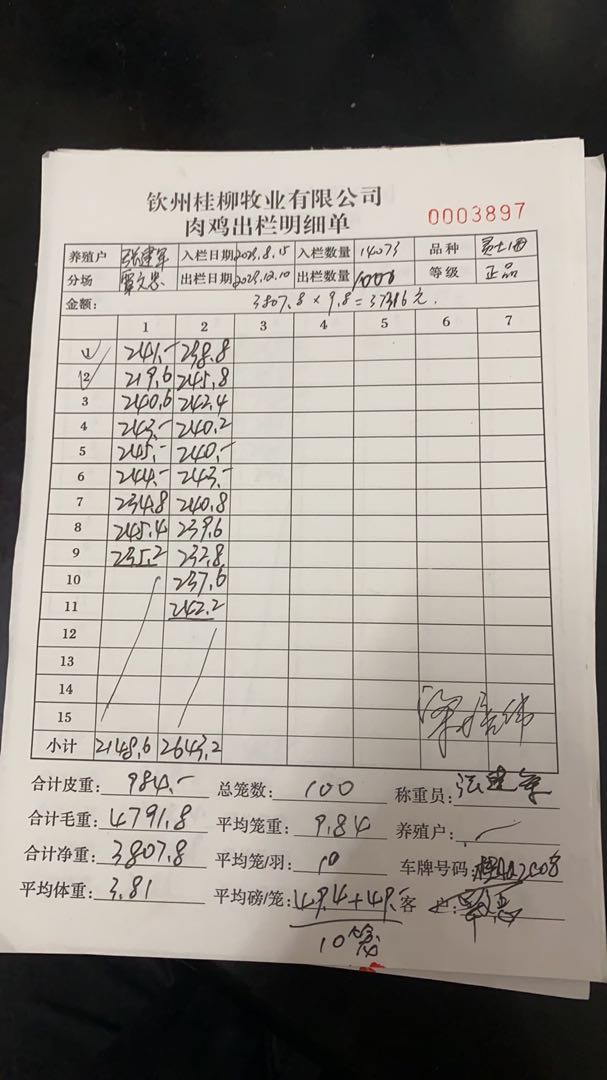 钦州桂柳牧业有限公司
肉鸡出栏明细单
0003897
养殖户 张建军 入栏日期 2023.8.15 入栏数量 14073 品种
分场 出栏日期 2023.12.10 出栏数量 1000 等级 正品
金额: 3807.8 × 9.8 = 37316 元.
1 2 3 4 5 6 7
1 241.- 238.8
2 219.6 245.8
3 240.6 242.4
4 243.- 240.2
5 245.- 240.-
6 244.- 243.-
7 234.8 240.8
8 245.4 239.6
9 235.2 232.8
10 237.6
11 242.2
12
13
14
15
小计 2148.6 2643.2
合计皮重: 984.- 总笼数: 100 称重员: 张建军
合计毛重: 4791.8 平均笼重: 9.84 养殖户:
合计净重: 3807.8 平均笼/羽: 10 车牌号码:
平均体重: 3.81 平均磅/笼: 49.4+49.- 客 户:
10笼